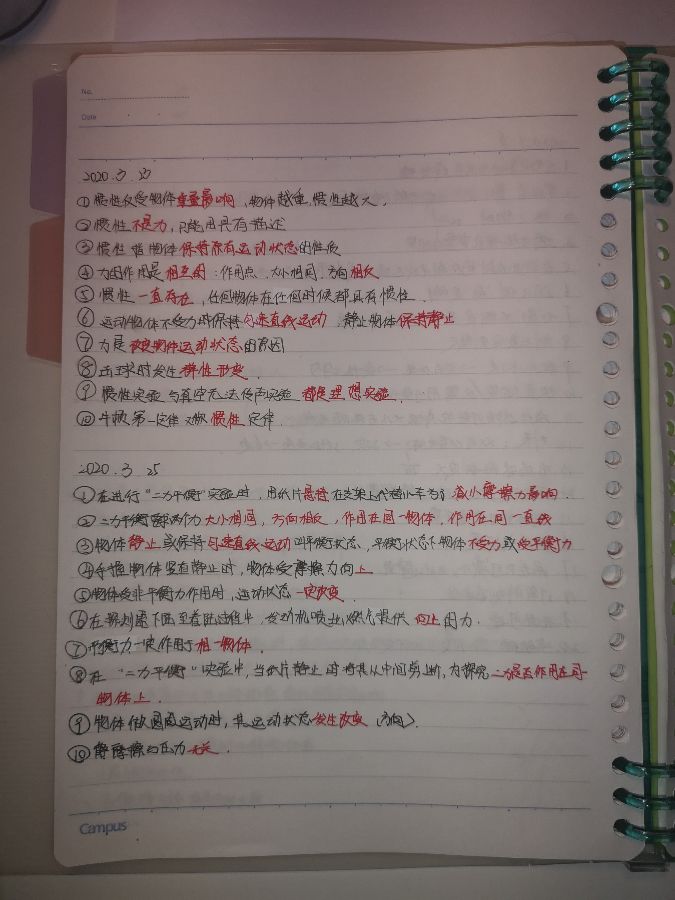 No.
Date
2020.3
①惯性仅受物体重量影响,物体越重,惯性越大.
②惯性不是力,只能用具有描述
③惯性指物体保持原有运动状态的性质
④力的作用是相互的:作用点,大小相同,方向相反
⑤惯性一直存在,任何物体在任何时候都具有惯性.
⑥运动物体不受力时保持匀速直线运动.静止物体保持静止
⑦力是改变物体运动状态的原因
⑧击球时发生弹性形变
⑨惯性实验与真空无法传声实验都是理想实验.
⑩牛顿第一定律又叫惯性定律.
2020.3 25
①在进行“二力平衡”实验时,用纸片悬持在支架上代替小车为了减小摩擦力影响.
②二力平衡要求两个力大小相同,方向相反,作用在同一物体,作用在同一直线
③物体静止或保持匀速直线运动叫平衡状态,平衡状态下物体不受力或受平衡力
④手握物体竖直静止时,物体受摩擦力向上
⑤物体受非平衡力作用时,运动状态一定改变.
⑥在 下面至着陆过程中,发动机喷出燃气提供向上的力.
⑦平衡力一定作用于相一物体.
⑧在“二力平衡”实验中,当纸片静止时将其从中间剪断,为探究二力是否作用在同一
物体上.
⑨物体做圆周运动时,其运动状态发生改变(方向).
⑩静摩擦与压力无关.
Campus